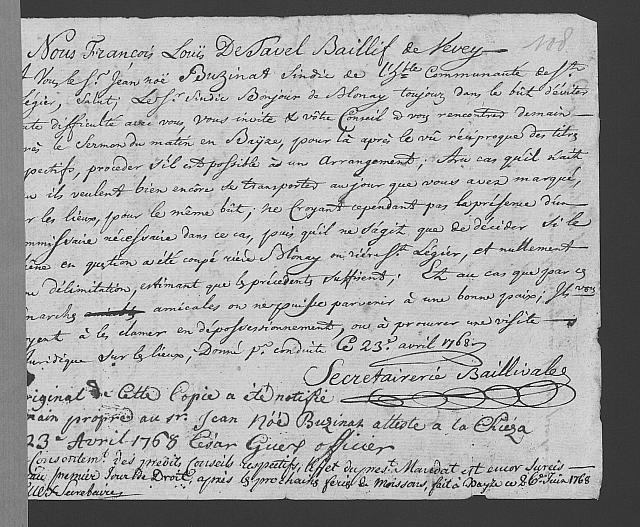 108
Nous François Louis De Tavel Baillif de Vevey
A Vous le Sr. Jean noé Buzinat Sindic de l'hble Communauté de St.
Légier, Salut; Le Sr. Sindic Bonjour de Blonay toujours dans le but d'éviter
difficulté avec vous vous invite & vôtre Conseil à vous rencontrer demain
après le Sermon du matin en Bayse, pour là après le vû réciproque des titres
respectifs, proceder s'il est possible à un Arrangement; Au cas qu'il s'ait
ils veulent bien encore se transporter au jour que vous avez marqué,
sur les lieux, pour le même bût; ne Croyant cependant pas la présence d'un
Commissaire nécessaire dans ce cas, puis qu'il ne s'agit que de décider si le
chêne en question a été coupé rière Blonay ou rière St. Légier, et nullement
une délimitation, estimant que les précédents suffisent; Et au cas que par ces
demarches amicales on ne puisse parvenir à une bonne paix, Ils vous
à les clamer en dépossessionnement, ou à procurer une visite
Juridique sur les lieux; Donné pr. conduite Ce 23e. avril 1768.
Secretairerie Baillivale
L'original de Cette Copie a été notifié
main propre au sr. Jean Nöé Buzinat atteste a la Chieza
23e Avril 1768 César Guex officier
Du Consentemt. des predits Conseils respectifs, l'effet du pnt. Mandat est encor surcis
au premier Jour de Droit, après les prochaines feries de moissons, fait à Bayse ce 26e. Juin 1768
Secretaire